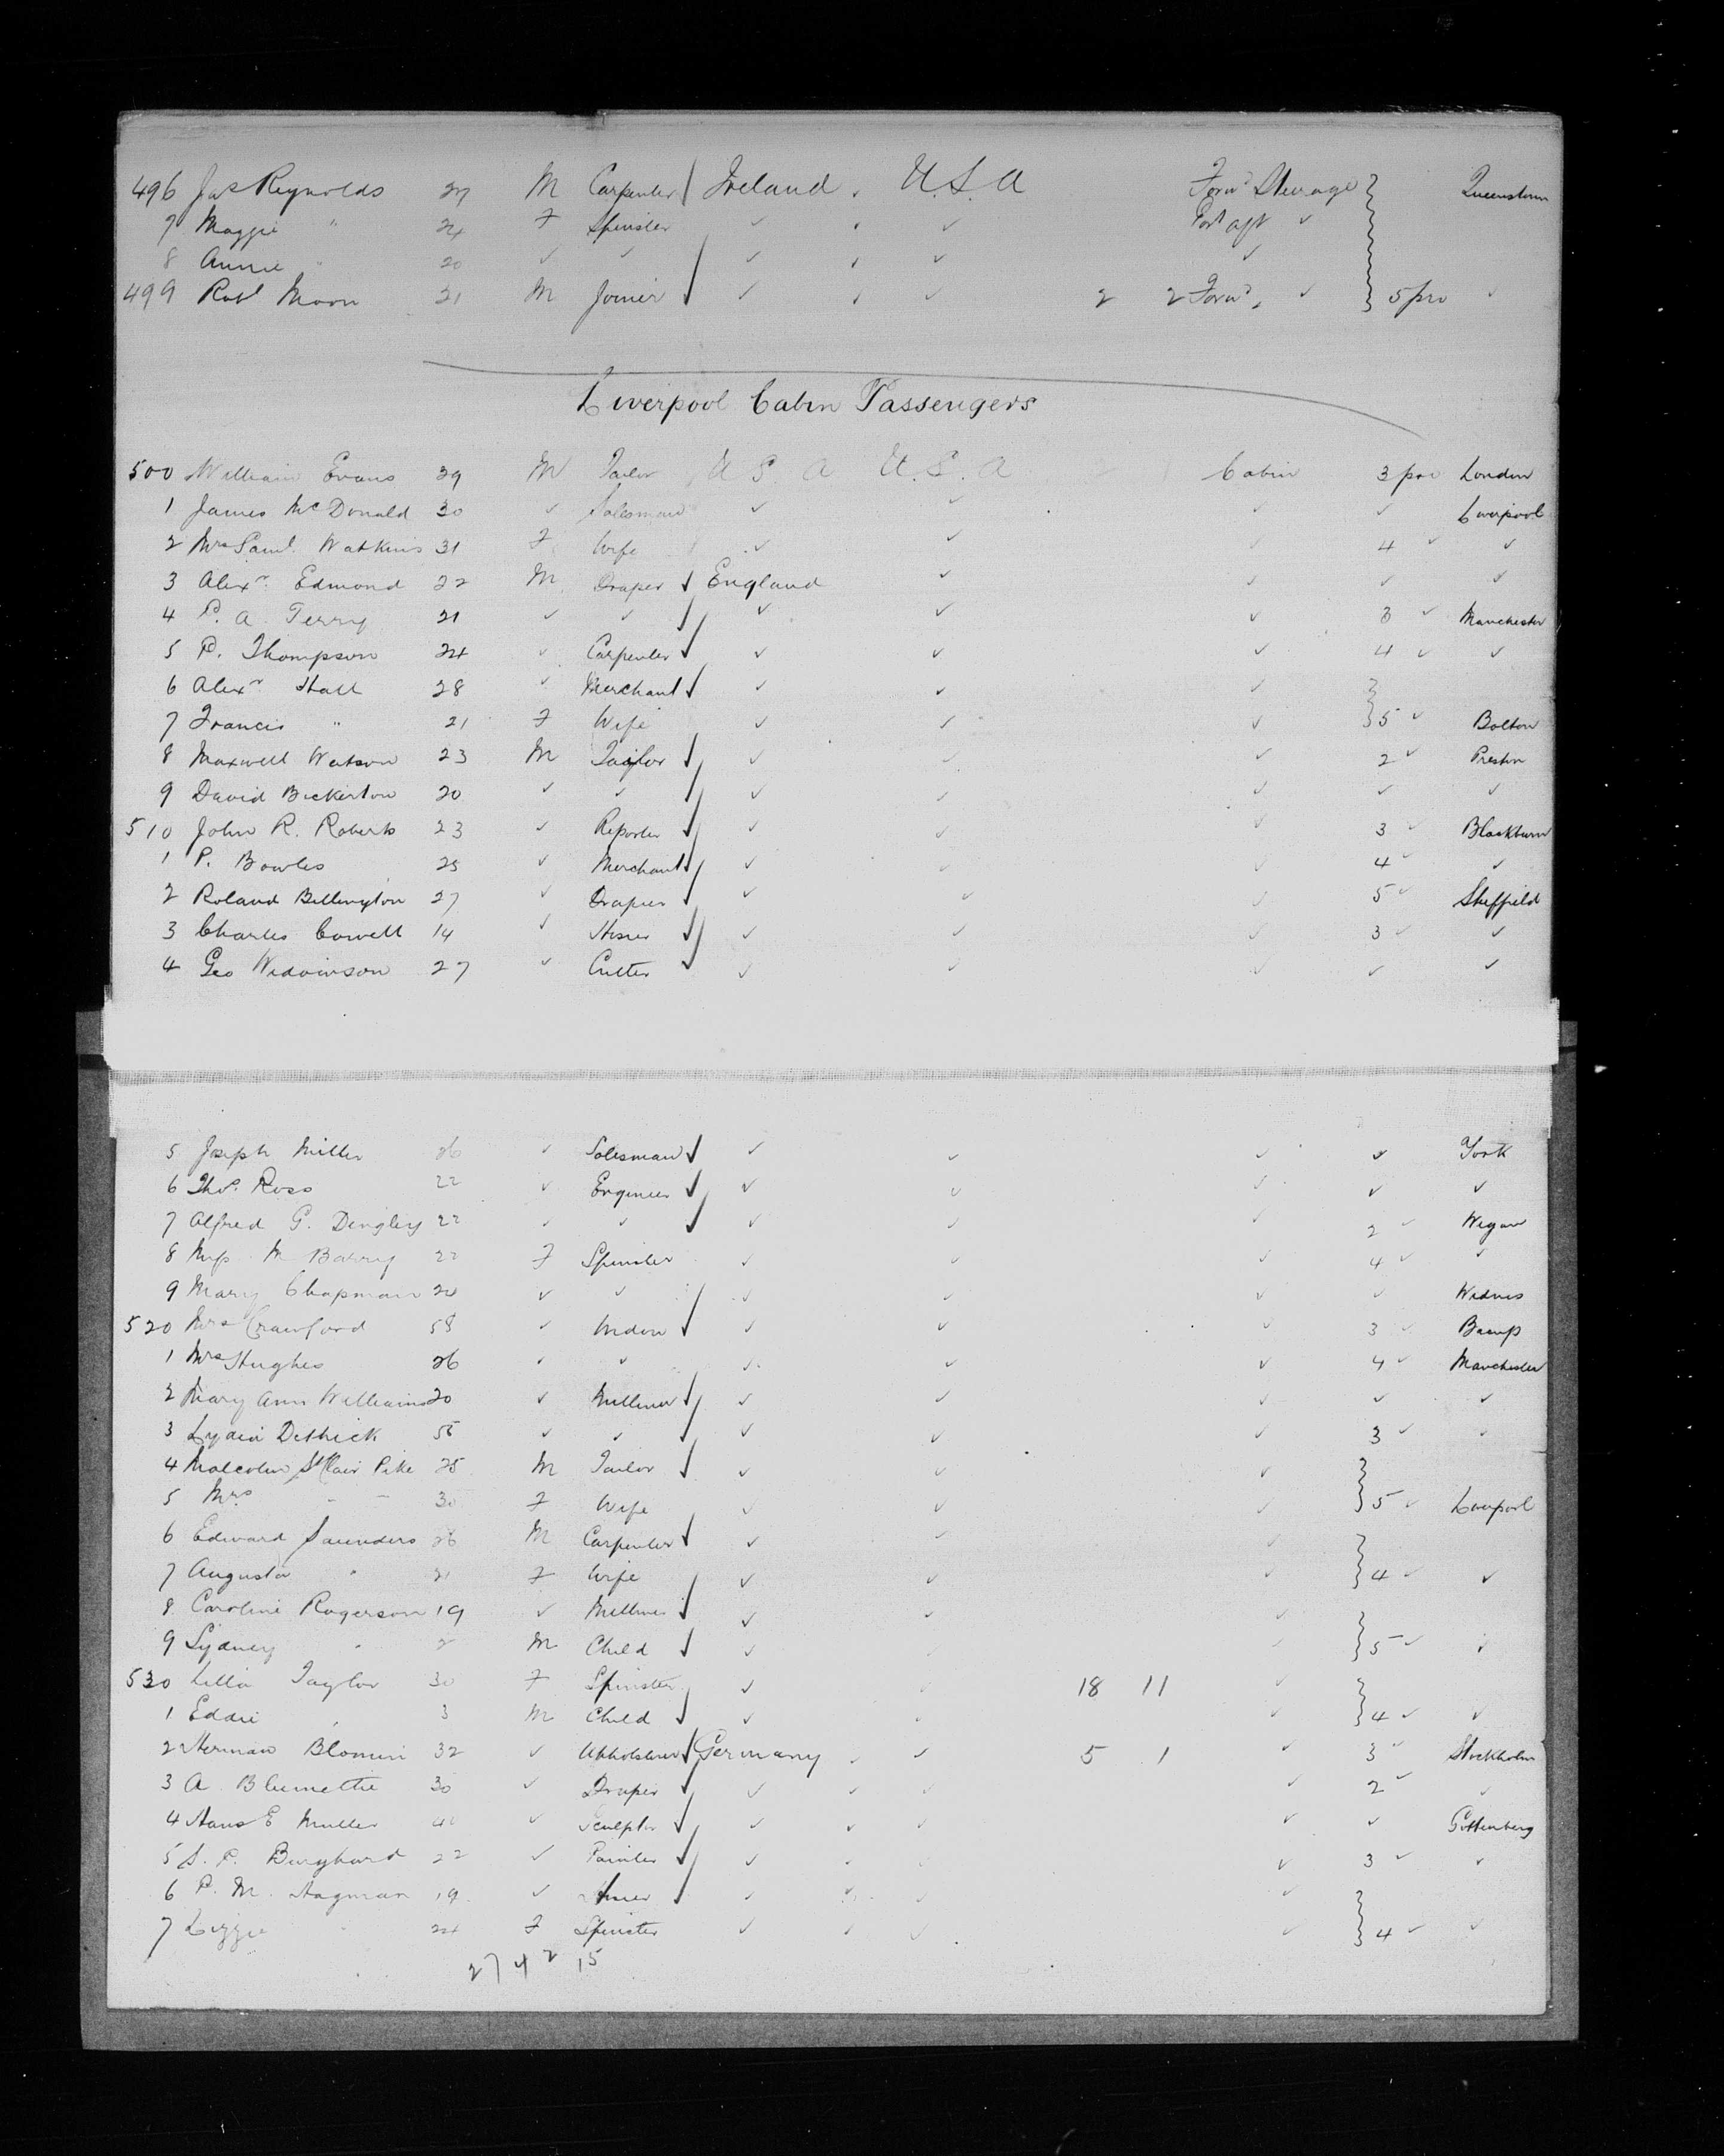 496 Jas Reynolds 27 M Carpenter Ireland . U.S.A Forwd Steerage Queenstown
7 Maggie " 24 F Spinster ✓ ✓ Port aft ✓
8 Annie " 20 ✓ ✓ ✓ ✓ ✓
499 Robt Moon 21 M Joiner ✓ ✓ 2 2 Forwd, ✓ 5 pro ✓
Liverpool Cabin Passengers
500 William Evans 29 M Tailor U S. A U.S. A Cabin 3 pro London
1 James McDonald 30 ✓ Salesman ✓ ✓ ✓ ✓ Liverpool
2 Mrs Saml. Watkins 31 F Wife ✓ ✓ ✓ 4 ✓ ✓
3 Alexr. Edmond 22 M Draper England ✓ ✓ ✓ ✓
4 P. A. Terry 21 ✓ ✓ ✓ ✓ ✓ 3 ✓ Manchester
5 P. Thompson 24 ✓ Carpenter ✓ ✓ ✓ 4 ✓ ✓
6 Alexr Hall 28 ✓ Merchant ✓ ✓ ✓
7 Francis " 21 F Wife ✓ ✓ ✓ 5 ✓ Bolton
8 Maxwell Watson 23 M Taylor ✓ ✓ ✓ 2 ✓ Preston
9 David Bickerton 20 ✓ ✓ ✓ ✓ ✓ ✓ ✓
510 John R. Roberts 23 ✓ Reporter ✓ ✓ ✓ 3 ✓ Blackburn
1 P. Bowles 25 ✓ Merchant ✓ ✓ ✓ 4 ✓ ✓
2 Roland Billington 27 ✓ Draper ✓ ✓ ✓ 5 ✓ Sheffield
3 Charles Cowell 14 ✓ Hosier ✓ ✓ ✓ 3 ✓ ✓
4 Geo 27 ✓ Cutter ✓ ✓ ✓ ✓ ✓
5 Joseph Miller 26 ✓ Salesman ✓ ✓ ✓ ✓ York
6 Thos. Ross 22 ✓ Engineer ✓ ✓ ✓ ✓ ✓
7 Alfred G. Dingley 22 ✓ ✓ ✓ ✓ ✓ 2 ✓ Wigan
8 Miss M Barry 22 F Spinster ✓ ✓ ✓ 4 ✓ ✓
9 Mary Chapman 24 ✓ ✓ ✓ ✓ ✓ ✓ Widnes
520 Mrs Crawford 58 ✓ Widow ✓ ✓ ✓ 3 ✓ Bacup
1 Mrs Hughes 26 ✓ ✓ ✓ ✓ ✓ 4 ✓ Manchester
2 Mary Ann Williams 20 ✓ Milliner ✓ ✓ ✓ ✓ ✓
3 Lydia Dethick 55 ✓ ✓ ✓ ✓ ✓ 3 ✓ ✓
4 Malcolm St Clair Pike 25 M Tailor ✓ ✓ ✓
5 Mrs " " 30 F Wife ✓ ✓ ✓ 5 ✓ Liverpool
6 Edward Saunders 26 M Carpenter ✓ ✓ ✓
7 Augusta " 21 F Wife ✓ ✓ ✓ 4 ✓ ✓
8 Caroline Rogerson 19 ✓ Milliner ✓ ✓ ✓
9 Sydney " 2 M Child ✓ ✓ ✓ 5 ✓ ✓
530 Lilla Taylor 30 F Spinster ✓ ✓ 18 11 ✓
1 Eddie " 3 M Child ✓ ✓ ✓ 4 ✓ ✓
2 Herman 32 ✓ Upholsterer Germany ✓ 5 1 ✓ 3 ✓ Stockholm
3 A 30 ✓ Draper ✓ ✓ ✓ ✓ 2 ✓ ✓
4 Hans E Muller 40 ✓ Sculptor ✓ ✓ ✓ ✓ ✓ Gottenberg
5 S. P. Burghard 22 ✓ Painter ✓ ✓ ✓ ✓ 3 ✓ ✓
6 P. M. Hagman 19 ✓ ✓ ✓ ✓ ✓
7 Lizzie " 24 F Spinster ✓ ✓ ✓ ✓ 4 ✓ ✓
27 4 2 15